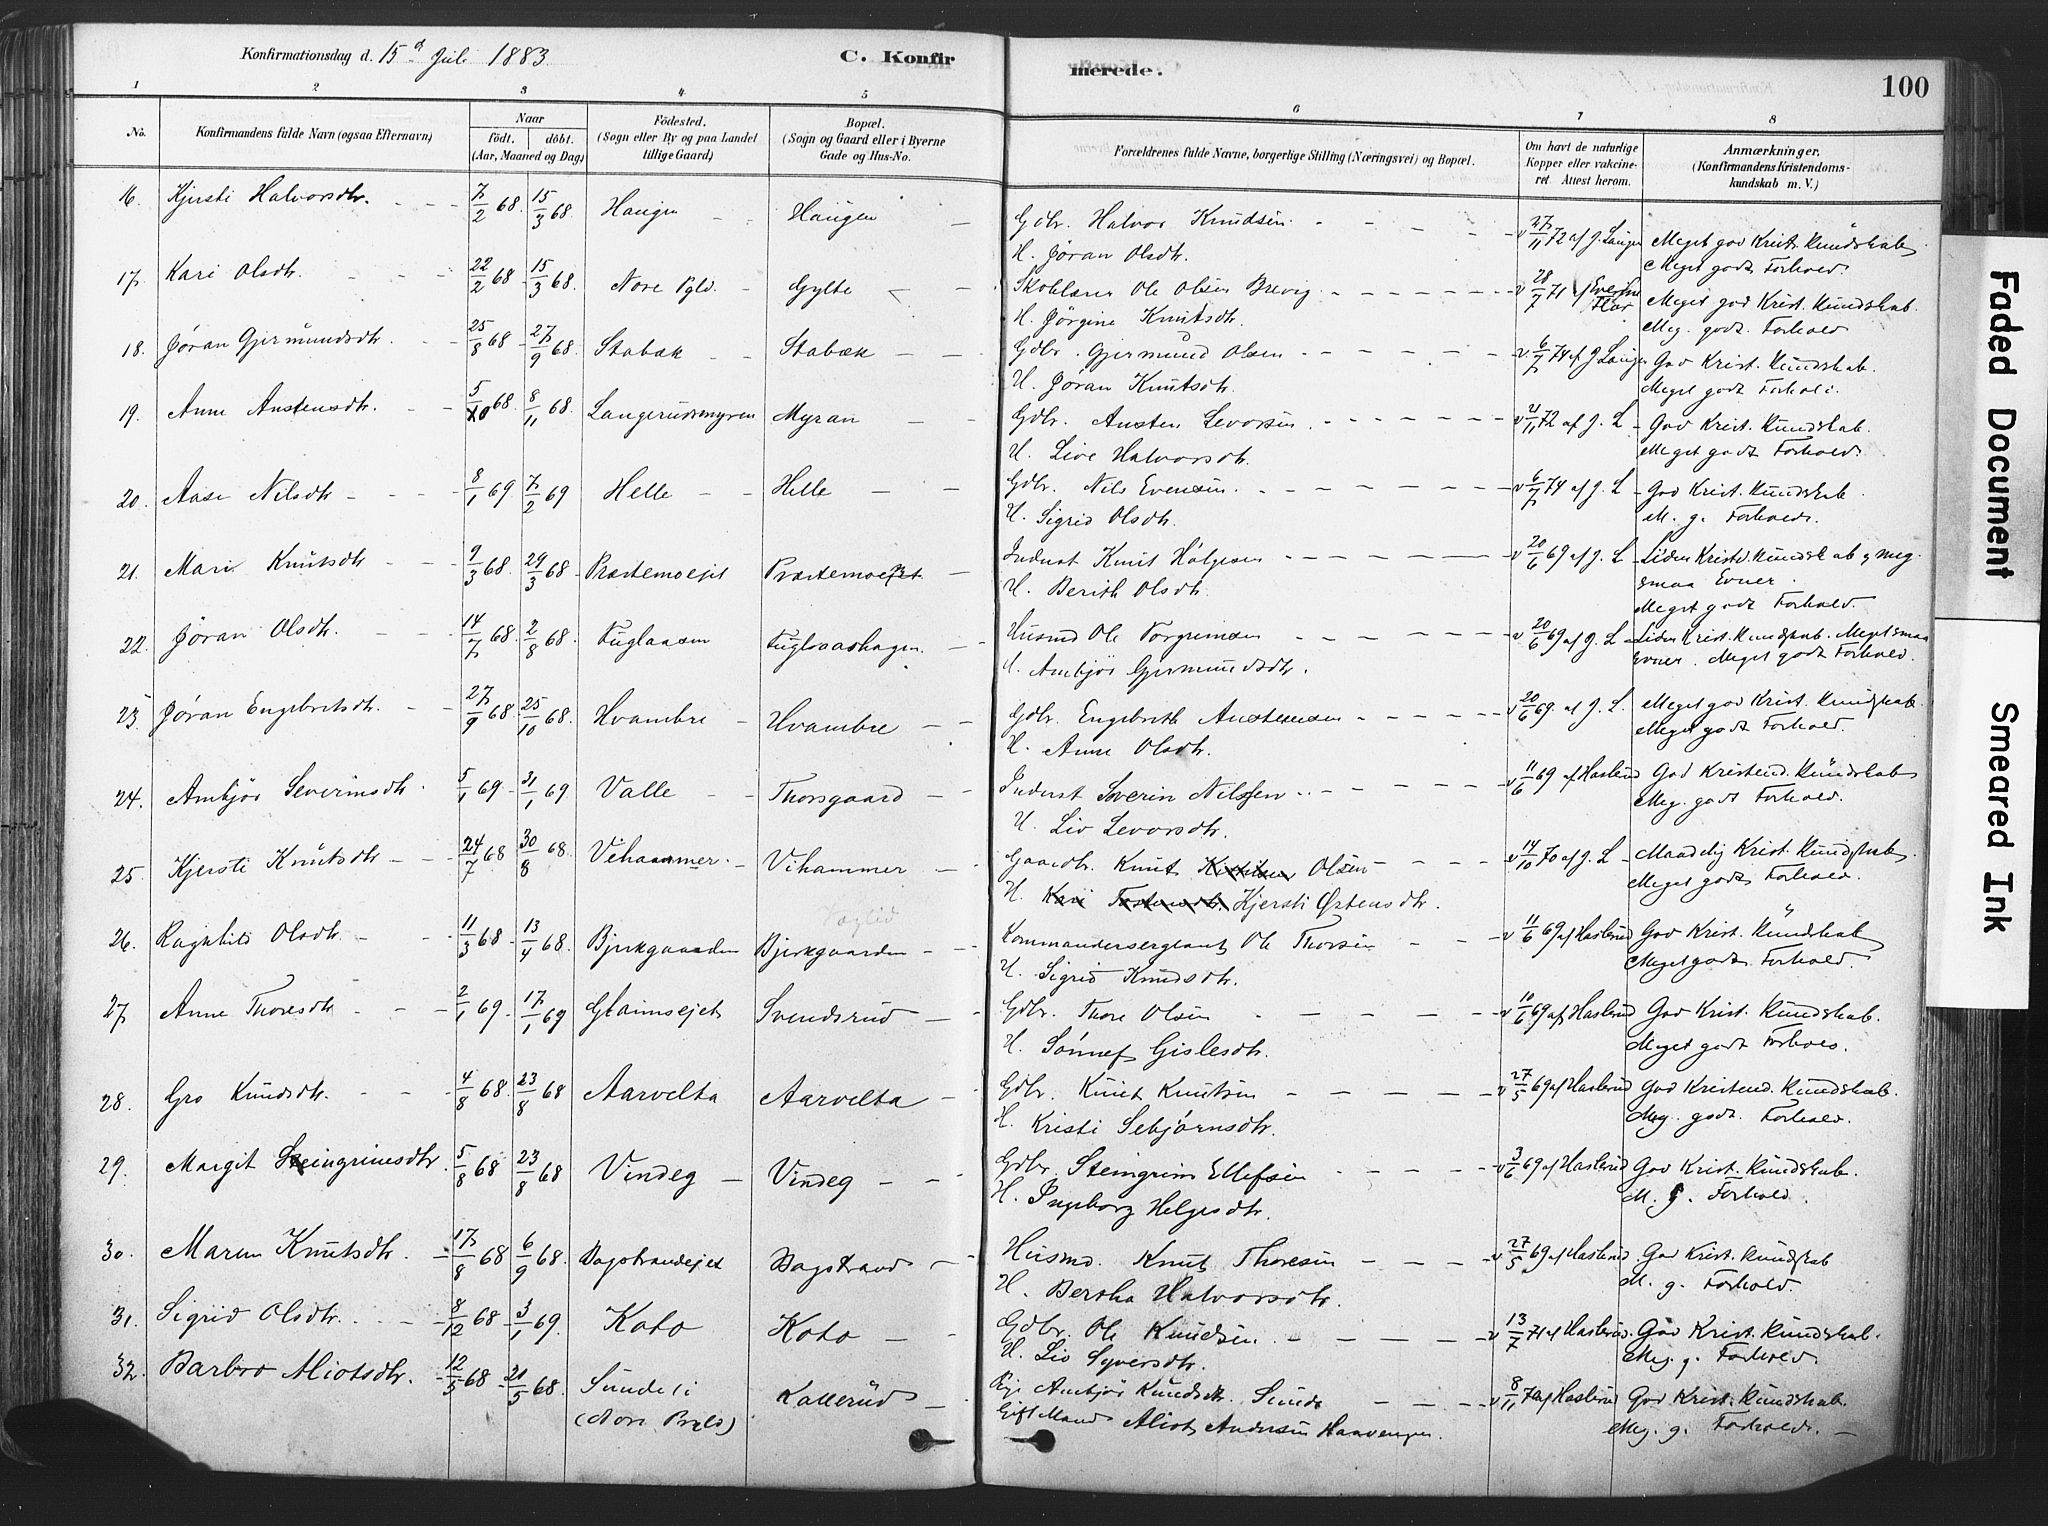 Konfirmationsdag d. 15d Juli 1883.
C. Konfirmerede.
100
1 2 3 4 5 6 7 8
No.
Konfirmandens fulde Navn (ogsaa Efternavn)
Naar
födt. döbt.
(Aar, Maaned og Dag)
Födested.
(Sogn eller By og paa Landet
tillige Gaard)
Bopæl.
(Sogn og Gaard eller i Byerne
Gade og Hus-No.
Forældrenes fulde Navne, borgerlige Stilling (Næringsvei) og Bopæl.
Om havt de naturlige
Kopper eller vakcine-
ret Attest herom.
Anmærkninger.
(Konfirmandens Kristendoms-
kundskab m. V.)
16. Kjersti Halvorsdtr. 7/2 68. 15/3 68 Haugen Haugen Gdbr. Halvor Knudsen v 27/11 72 af J. Langer Meget god Krist. Kundskab
H. Jøran Olsdtr. Meget godt Forhold.
17. Kari Olsdtr. 22/2 68 15/3 68. Nore Pgld. Gylte Skolelærer Ole Olsen Brevig v 28/7 71 Meget god Krist. Kundskab.
H. Jørgine Knutsdtr. Meg. godt. Forhold
18. Jøran Gjermundsdtr. 25/8 68 27/9 68. Stabæk Stabæk Gdbr. Gjermund Olsen v. 6/7 74 af J Langer God Krist. Kundskab.
H. Jøran Knutsdtr. Meget godt Forhold.
19. Anne Austensdtr. 5/10 68. 8/11 68. Langerudsmyren Myran Gdbr. Austen Levorsen v 21/11 72 af J. L God Krist. Kundskab.
H. Live Halvorsdtr. Meget godt Forhold.
20. Aase Nilsdtr 8/1 69 7/2 69 Helle Helle Gdbr. Nils Evensen. v 6/7 74 af J. L God Krist. Kundskab.
H. Sigrid Olsdtr. M. g. Forhold.
21. Mari Knutsdtr 9/3 68. 29/3 68 Præstemoejet Præstemoejet Inderst Knut Helgesen v 20/6 69 af J. L Liden Kristd Kundskab og meg
smaa Evner.
H. Berith Olsdtr. Meget godt Forhold.
22. Jøran Olsdtr. 14/7 68. 2/8 68. Fuglaasen Fuglaashagen Husmd Ole Torgrimsen v 20/6 69 af J. L Liden Krist. Kundskab. Meget smaa
H. Ambjør Gjermundsdtr. Evner. Meget godt Forhold.
23. Jøran Engebretsdtr. 27/9 68 25/10 68. Hvambre Hvambre Gdbr. Engebreth Austensen v 20/6 69. af J. L. Meget god Krist. Kundskab.
H. Anne Olsdtr. Meget godt Forhold.
24. Ambjør Severinsdtr. 5/1 69 31/1 69 Valle Thorsgaard Inderst Severin Nilssen v 11/6 69 af Haslerud God Kristend. Kundskab
H. Liv Levorsdtr. Meg. godt Forhold.
25. Kjersti Knutsdtr 24/7 68 30/8 68. Vihammer. Vihammer Gaardbr. Knut Olsen v 14/10 70 af J. L Maadelig Krist. Kundskab.
H. Kari Kjersti Østensdtr. Meget godt Forhold.
26. Ragnhild Olsdtr. 11/3 68 13/4 68. Bjerkgaarden Bjerkgaarden Kommandersergeant Ole Thorsen v 11/6 69 af Haslerud God Krist. Kundskab
H. Sigrid Knudsdtr. Meget godt. Forhold.
27. Anne Thoresdtr 2/1 69 17/1 69 Glaimsejet Svendsrud Gdbr. Thore Olsen v 10/6 69 af Haslerud God Krist. Kundskab.
H. Sønnef Gislesdtr. Meget godt Forhold.
28. Gro Knudsdtr. 4/8 68. 23/8 68 Aarvelta Aarvelta Gdbr. Knut Knutsen v 27/5 69 af Haslerud God Kristend. Kundskab.
H. Kristi Sebjørnsdtr. Meg. godt. Forhold.
29. Margit Steingrimsdtr. 5/8 68 23/8 68 Vindeg Vindeg Gdbr. Steingrim Ellefsen v 3/6 69 af Haslerud God Krist. Kundskab.
H. Ingeborg Helgesdtr. M. g. Forhold.
30. Maren Knutsdtr. 17/8 68 6/9 68. Dagstrandejet Dagstrand Husmd. Knut Thoresen v 27/5 69 af Haslerud. God Krist. Kundskab
H. Bertha Halvorsdtr. M. g. Forhold.
31. Sigrid Olsdtr. 8/12 68 3/1 69. Koto Koto Gdbr. Ole Knudsen v 13/7 71 af Haslerud. God Krist. Kundskab.
H. Liv Syversdtr. Meg. g. Forhold
32. Barbro Aliotsdtr. 12/5 68 21/5 68. Sunde i Kallerud Pige Ambjør Knudsdtr. Sunde v 8/11 70 af Haslerud God Krist. Kundskab.
(Nore Prgld) Gift Mand Aliot Andersen Haavengen. Meg. g. Forhold.
Faded Document
Smeared Ink